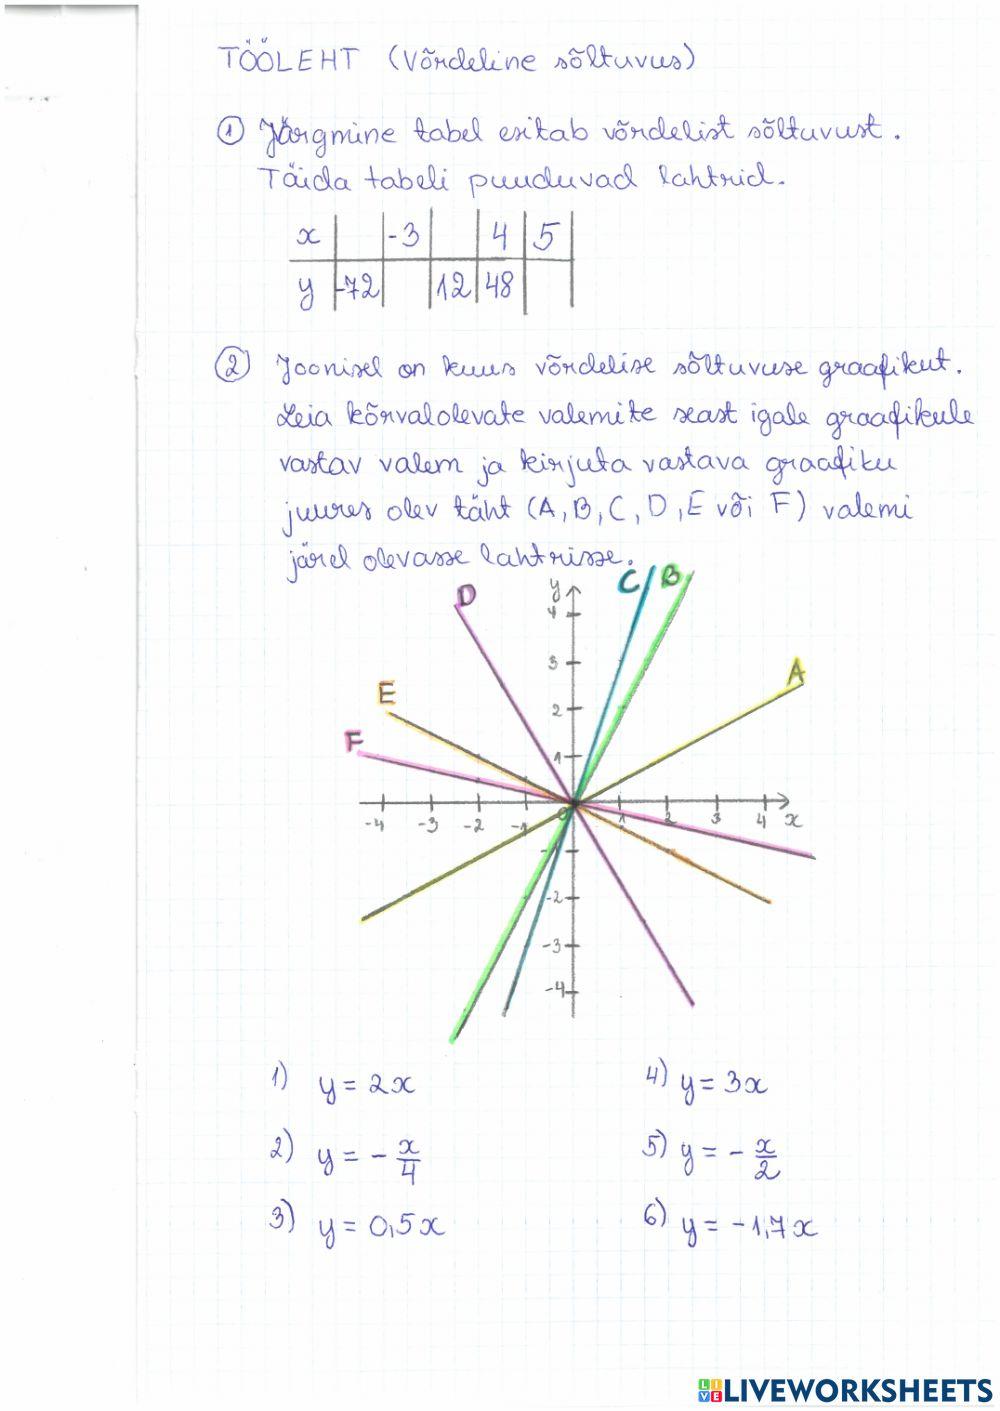 TÖÖLEHT (Võrdeline sõltuvus)
① Järgmine tabel esitab võrdelist sõltuvust.
Täida tabeli puuduvad lahtrid.
x -3 4 5
y -72 12 48
② Joonisel on kuus võrdelise sõltuvuse graafikut.
Leia kõrvalolevate valemite seast igale graafikule
vastav valem ja kirjuta vastava graafiku
juures olev täht (A, B, C, D, E või F) valemi
järel olevasse lahtrisse.
D y C B
4
3 A
E 2
F 1
-4 -3 -2 -1 0 1 2 3 4 x
-1
-2
-3
-4
1) y = 2x 4) y = 3x
2) y = - x/4 5) y = - x/2
3) y = 0,5x 6) y = -1,7x
LIVEWORKSHEETS